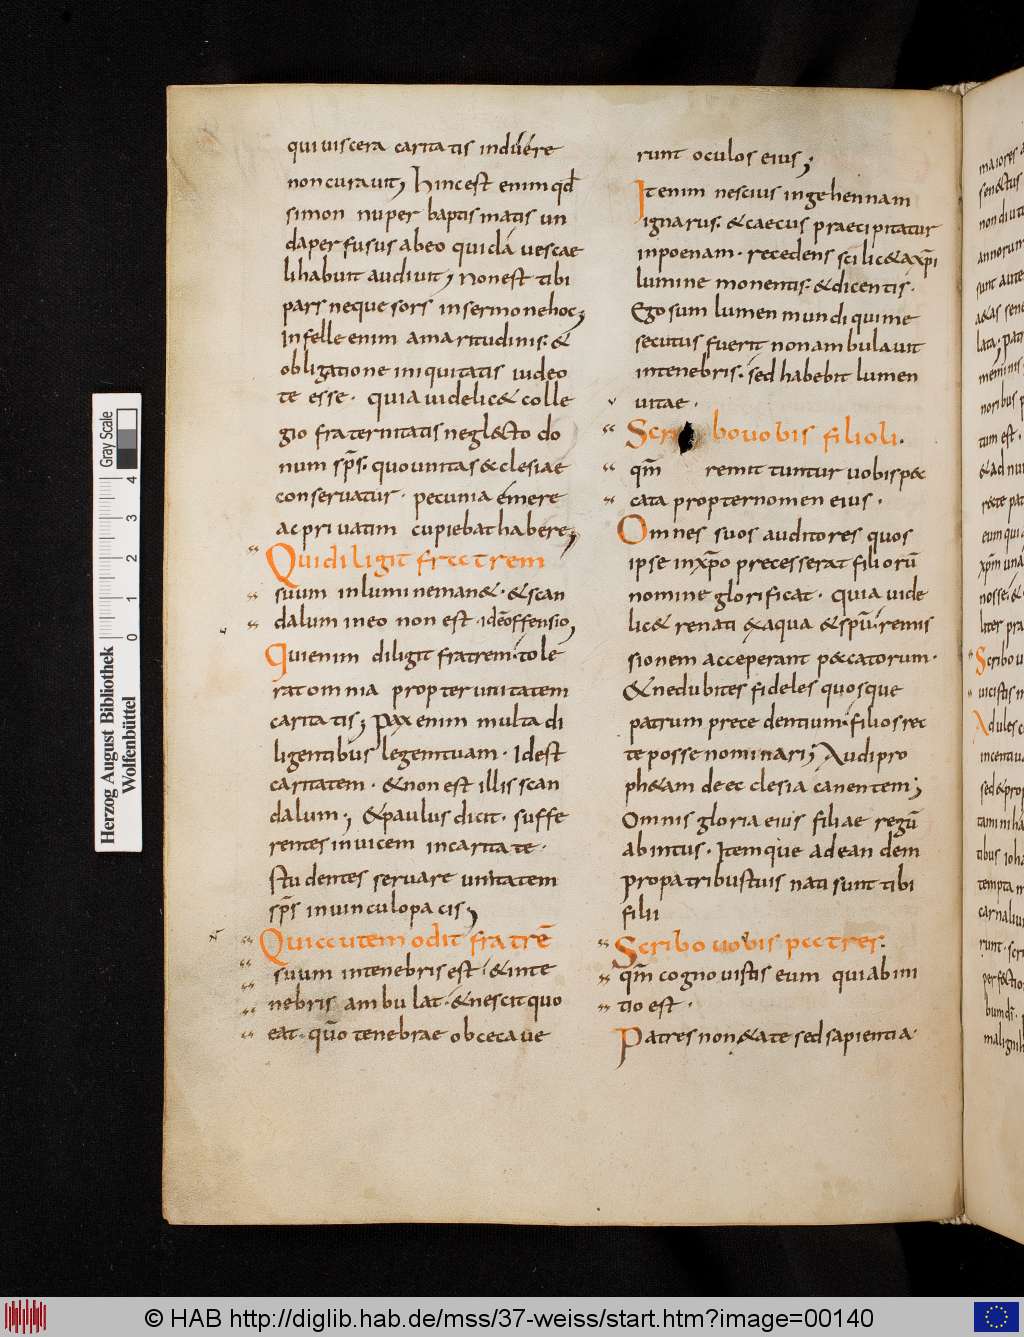 qui viscera caritatis induere
non curavit; Hinc est enim qđ
simon nuper baptismatis un
da perfusus ab eo qui dã vescae
li habuit audivit; Non est tibi
pars neque sors in sermone hoc;
In felle enim amaritudinis. &
obligatione iniquitatis video
te esse. quia videlic& colle
gio fraternitatis neglecto do
num sp̄s. quo unitas ecclesiae
conservatur. pecunia emere
ac privatim cupiebat habere;
Qui diligit fratrem
suum in lumine man&. & scan
dalum in eo non est. id ē offensio;
Qui enim diligit fratrem. tole
rat omnia propter unitatem
caritatis; Pax enim multa di
ligentibus legem tuam. Id est
caritatem. & non est illis scan
dalum; & paulus dicit. suffe
rentes invicem in caritate.
studentes servare unitatem
sp̄s in vinculo pacis;
Qui autem odit fratrē
suum in tenebris est. & in te
nebris ambulat. & nescit quo
eat. quō tenebrae obcecave
runt oculos eius;
It enim nescius in gehennam
ignarus. & caecus praecipitatur
in poenam. recedens scilic& a xp̄i
lumine monentis. & dicentis.
Ego sum lumen mundi qui me
secutus fuerit non ambulavit
in tenebris. sed habebit lumen
vitae.
Scribo vobis filioli.
qm̄ remittuntur vobis pec
cata propter nomen eius.
Omnes suos auditores quos
ipse in xp̄o precesserat filiorū
nomine glorificat. quia vide
lic& renati ex aqua & spū. remis
sionem acceperant peccatorum.
& ne dubites fideles quosque
patrum precedentium. filios rec
te posse nominari; Audi pro
ph&am de ecclesia canentem;
Omnis gloria eius filiae regū
ab intus. Itemque ad eandem
Pro patribus tuis nati sunt tibi
filii
Scribo vobis patres.
qm̄ cognovistis eum qui ab ini
tio est.
Patres non &ate sed sapientia
maiores
senectus
non diut
annorum
sunt
lata; pat
meninis
noribus
tum est.
& ad nu
recte pat
eum qui
xp̄m una
nosse. &
liter pra
Scribo v
vicistis m
Adulesc
incentiva
sed & prop
tibus ioha
tempta
carnaliu
runt. scr
perfectio
malign
Herzog August Bibliothek
Wolfenbüttel
Gray Scale
0 1 2 3 4
© HAB http://diglib.hab.de/mss/37-weiss/start.htm?image=00140